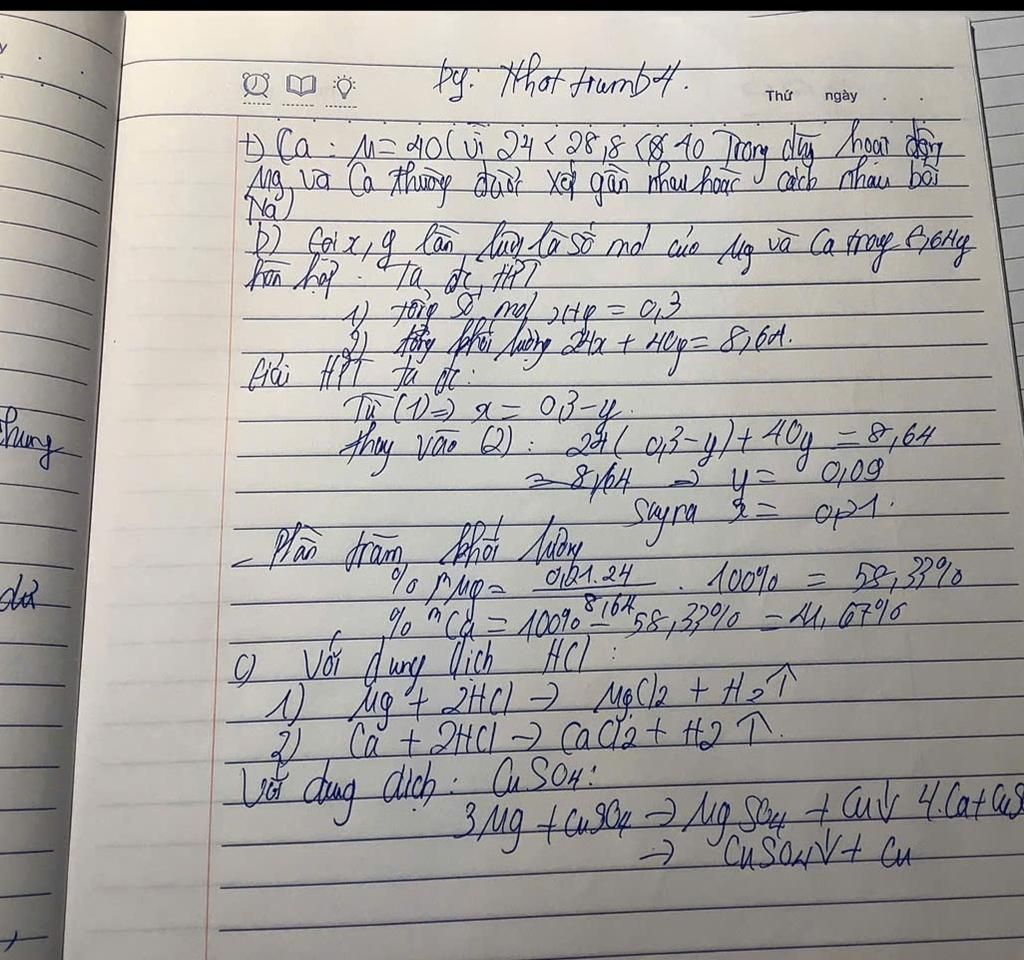 by: Nhot trumb4.
Thứ ngày . .
+) Ca : M = 40 (vì 24 < 28,8 < 40 Trong dãy hoạt động
Mg và Ca thường được xếp gần nhau hoặc cách nhau bởi
Na)
b) Gọi x, y lần lượt là số mol của Mg và Ca trong 8,64g
hỗn hợp. Ta đc HPT
1) tổng số mol x+y = 0,3
2) tổng khối lượng 24x + 40y = 8,64.
Giải HPT ta đc:
Từ (1) => x = 0,3-y.
thay vào (2) : 24( 0,3-y) + 40y = 8,64
= 8,64 => y = 0,09
Suy ra x = 0,21.
- Phần trăm khối lượng
% mMg = 0,21.24 . 100% = 58,33%
8,64
% mCa = 100% - 58,33% = 41,67%
c) Với dung dịch HCl :
1) Mg + 2HCl → MgCl2 + H2↑
2) Ca + 2HCl → CaCl2 + H2 ↑.
Với dung dịch : CuSO4:
3 Mg + CuSO4 → MgSO4 + Cu↓ 4.Ca+CuS
→ CuSO4↓ + Cu
chung